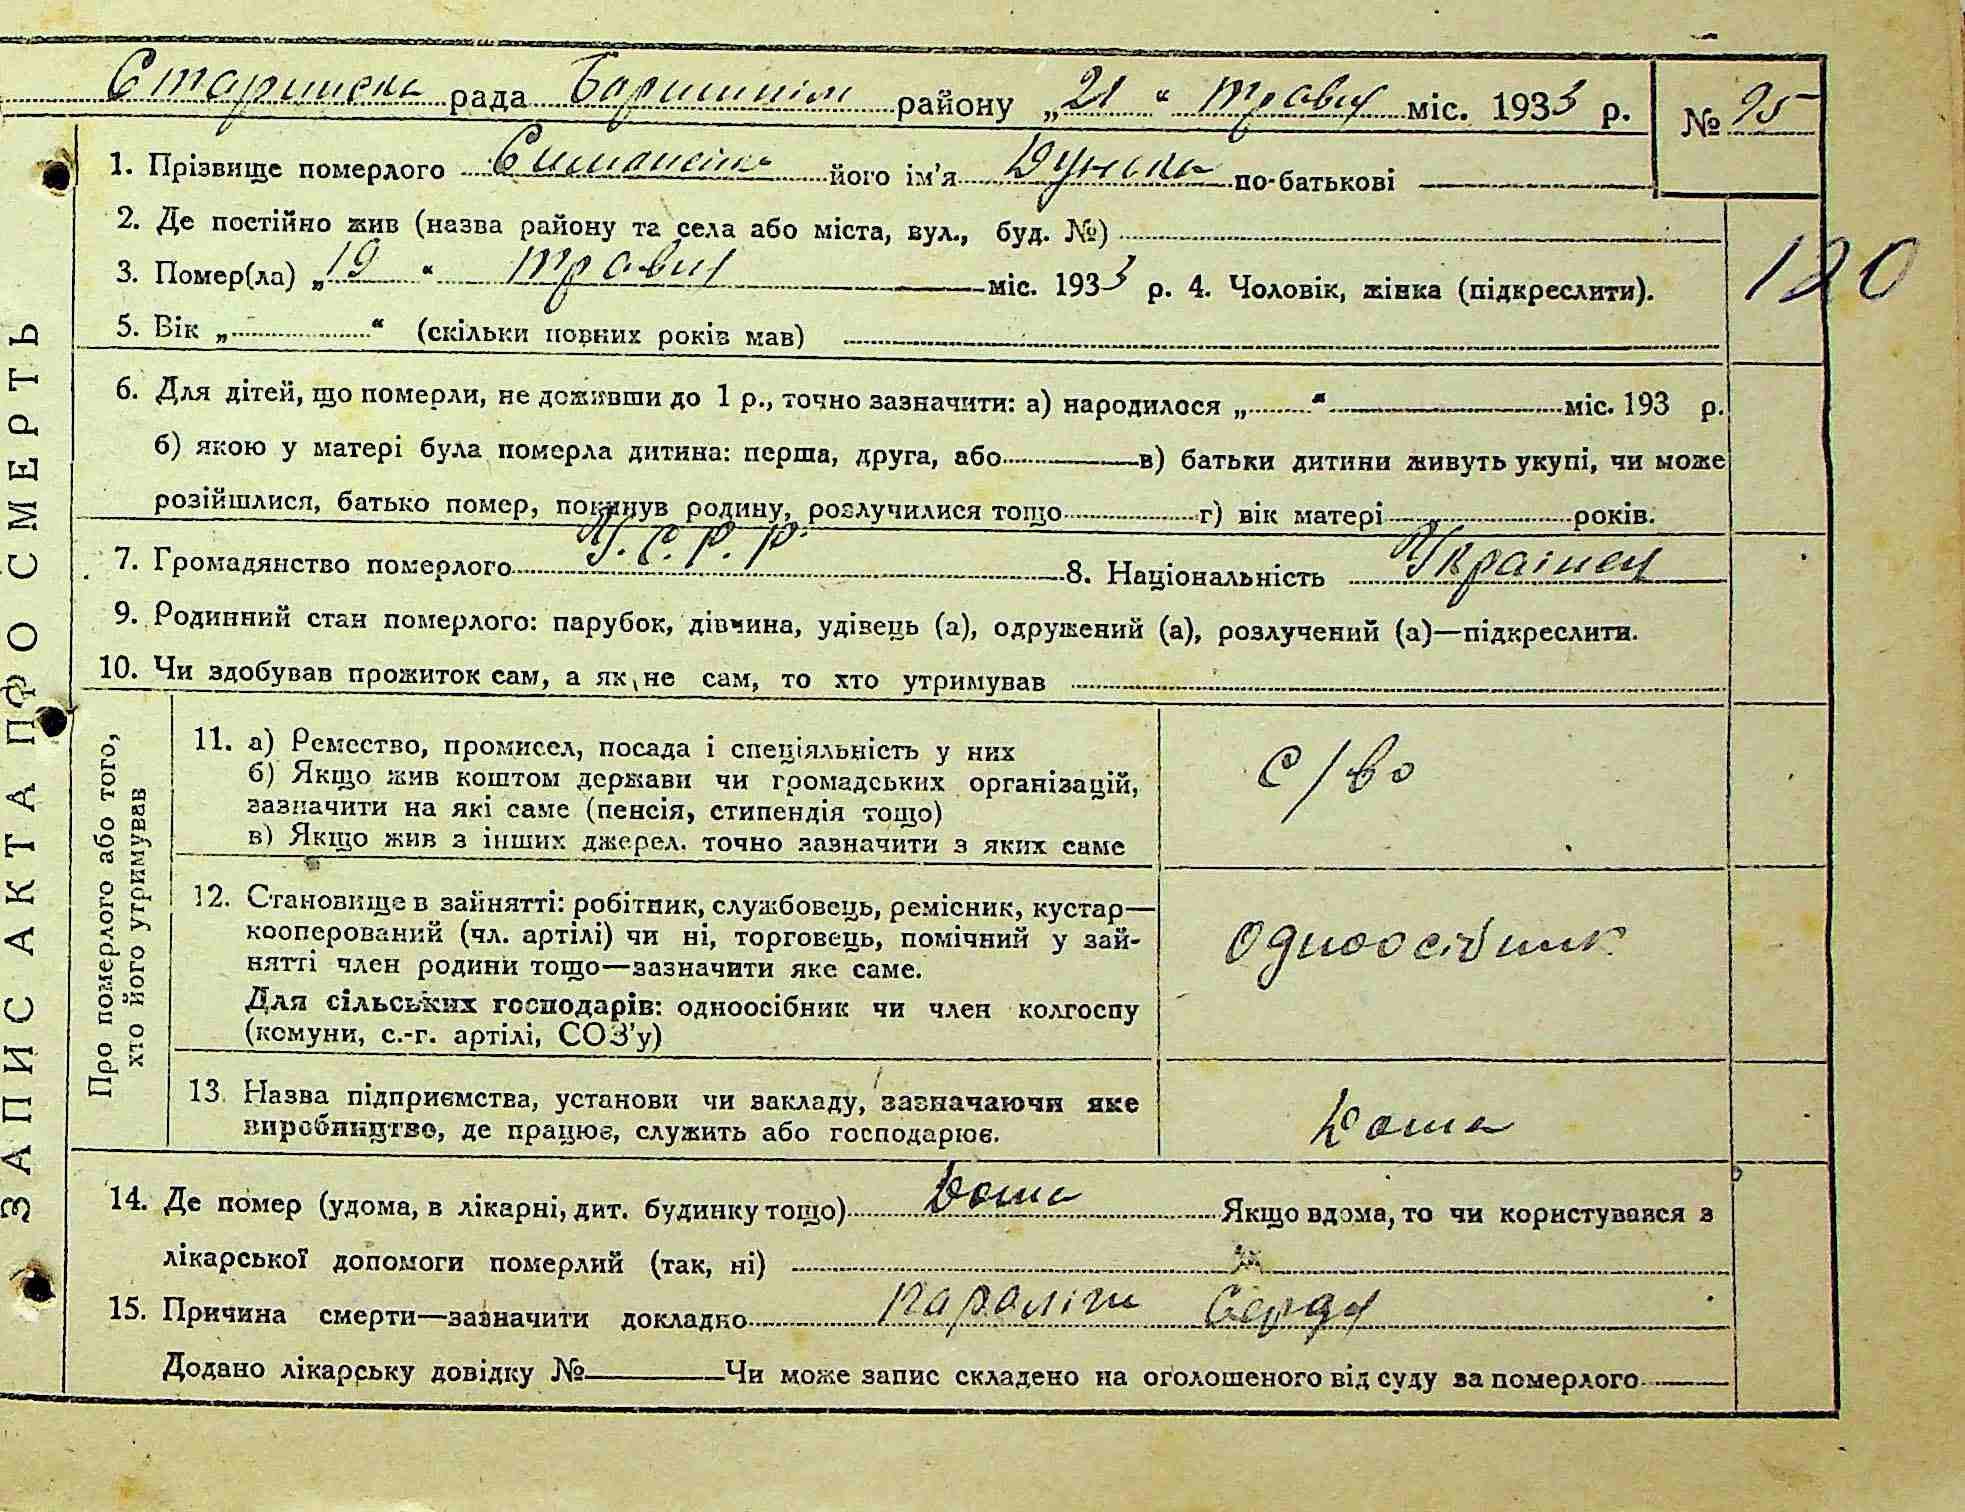 Старинська рада Бориспіл району „21“ травня міс. 1933 р. № 95
1. Прізвище померлого його ім’я Дунька по-батькові —
2. Де постійно жив (назва району та села або міста, вул., буд. №)
120
3. Помер(ла) „19“ травня міс. 1933 р. 4. Чоловік, жінка (підкреслити).
5. Вік „ “ (скільки повних років мав)
6. Для дітей, що померли, не доживши до 1 р., точно зазначити: а) народилося „ “ міс. 193 р.
б) якою у матері була померла дитина: перша, друга, або в) батьки дитини живуть укупі, чи може
розійшлися, батько помер, покинув родину, розлучилися тощо г) вік матері років.
7. Громадянство померлого У.С.Р.Р. 8. Національність Українец
9. Родинний стан померлого: парубок, дівчина, удівець (а), одружений (а), розлучений (а)—підкреслити.
10. Чи здобував прожиток сам, а як не сам, то хто утримував
ЗАПИС АКТА ПРО СМЕРТЬ
Про померлого або того,
хто його утримував
11. а) Ремество, промисел, посада і спеціяльність у них
б) Якщо жив коштом держави чи громадських організацій,
зазначити на які саме (пенсія, стипендія тощо)
в) Якщо жив з інших джерел. точно зазначити з яких саме
с/во
12. Становище в зайнятті: робітник, службовець, ремісник, кустар—
кооперований (чл. артілі) чи ні, торговець, помічний у зай-
нятті член родини тощо—зазначити яке саме.
Для сільських господарів: одноосібник чи член колгоспу
(комуни, с.-г. артілі, СОЗ’у)
одноосібник
13. Назва підприємства, установи чи закладу, зазначаючи яке
виробництво, де працює, служить або господарює.
Дома
14. Де помер (удома, в лікарні, дит. будинку тощо) Дома Якщо вдома, то чи користувався з
лікарської допомоги померлий (так, ні)
15. Причина смерти—зазначити докладно параліч серця
Додано лікарську довідку № — Чи може запис складено на оголошеного від суду за померлого —